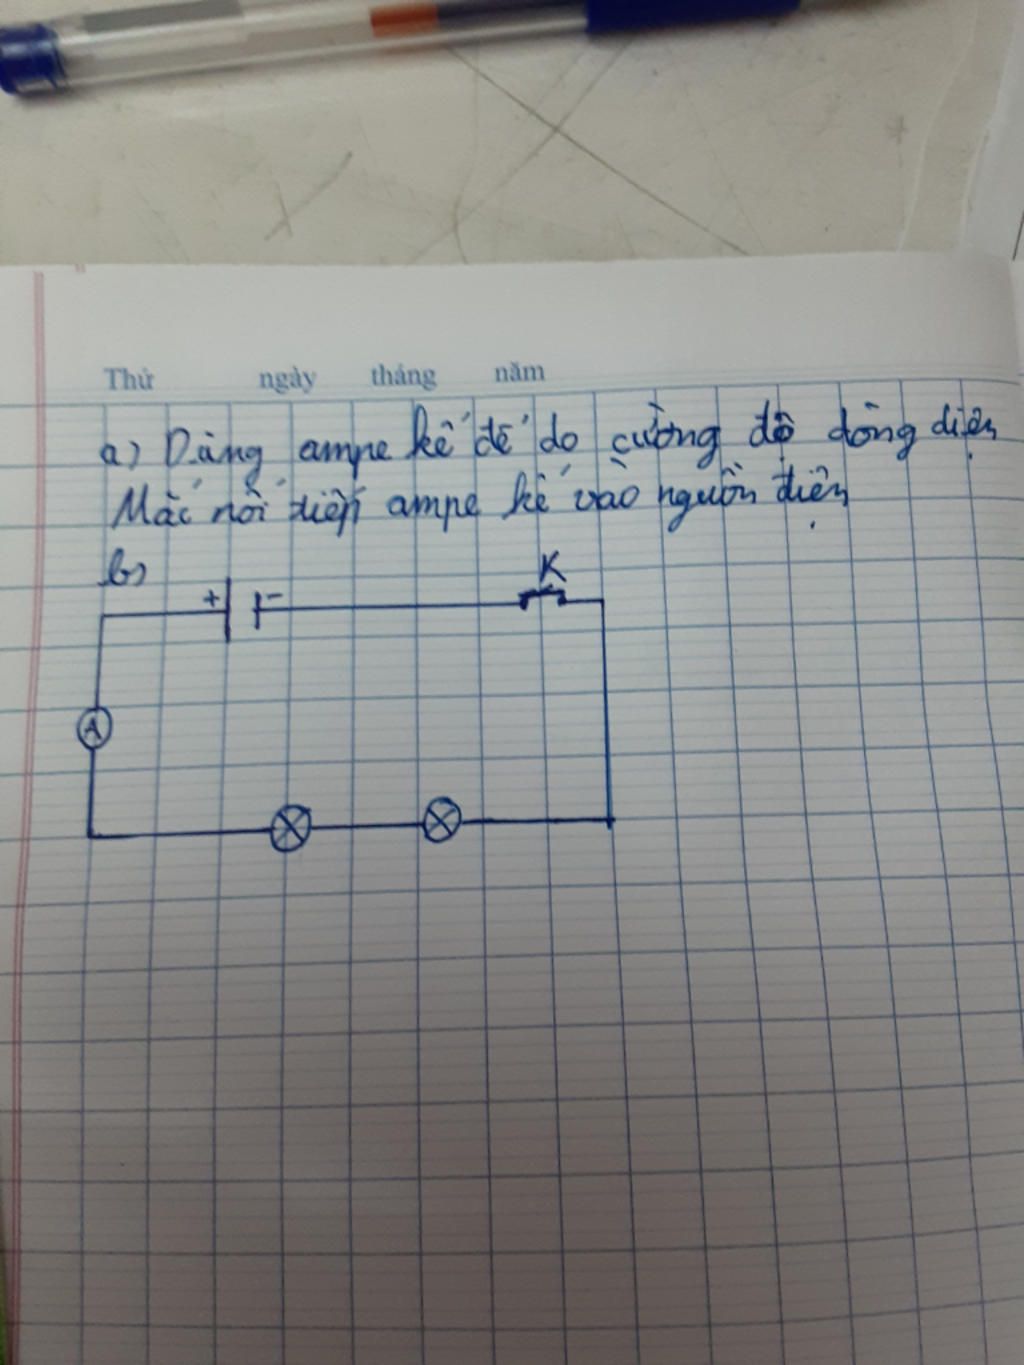 Thứ ngày tháng năm
a) Dùng ampe kế để đo cường độ dòng điện
Mắc nối tiếp ampe kế vào nguồn điện
b)
+ - K
A